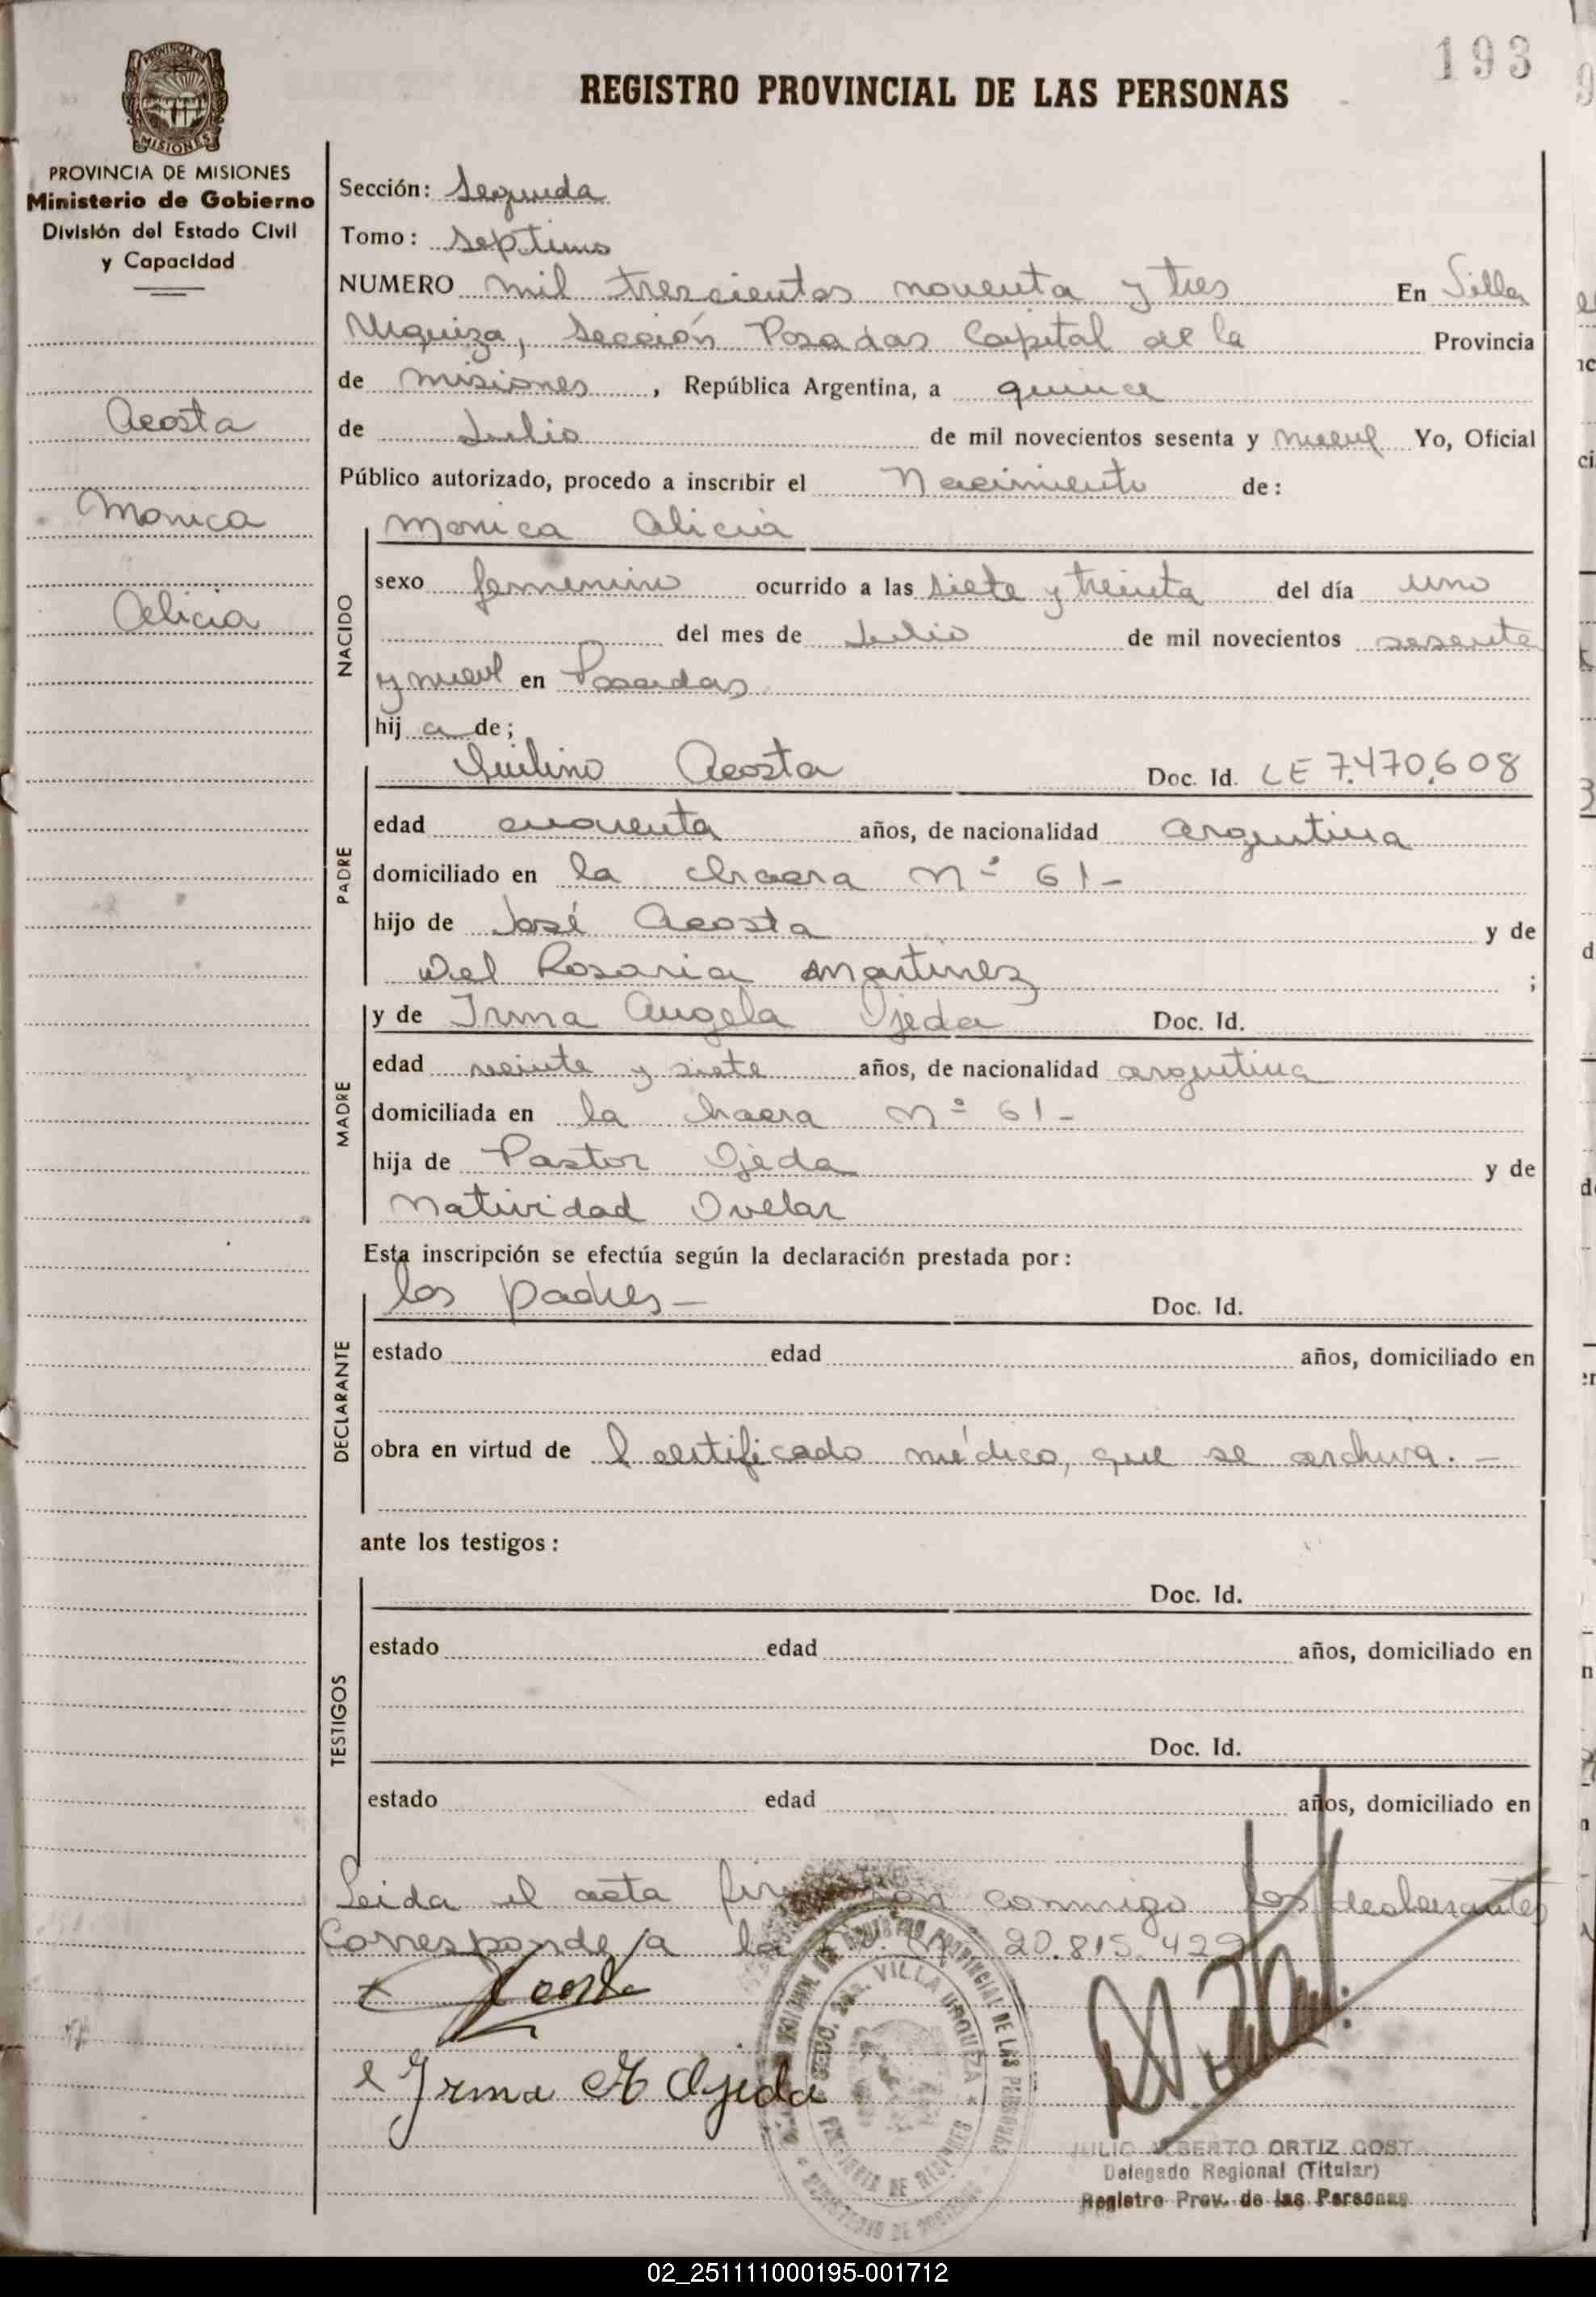 193
REGISTRO PROVINCIAL DE LAS PERSONAS
MISIONES
PROVINCIA DE MISIONES
Ministerio de Gobierno
División del Estado Civil
y Capacidad
Acosta
Monica
Alicia
Sección: Segunda
Tomo: Septimo
NUMERO mil trescientos noventa y tres En Villa
Urquiza, Sección Posadas Capital de la Provincia
de misiones, República Argentina, a quince
de Julio de mil novecientos sesenta y nueve Yo, Oficial
Público autorizado, procedo a inscribir el Nacimiento de:
NACIDO
Monica Alicia
sexo femenino ocurrido a las siete y treinta del día uno
del mes de Julio de mil novecientos sesenta
y nueve en Posadas
hij a de;
PADRE
Acosta Doc. Id. LE 7.470.608
edad cuarenta años, de nacionalidad argentina
domiciliado en la chacra Nº 61-
hijo de José Acosta y de
Del Rosario Martinez ;
MADRE
y de Irma Angela Ojeda Doc. Id.
edad veinte y siete años, de nacionalidad argentina
domiciliada en la chacra Nº 61-
hija de Pastor Ojeda y de
Natividad Ovelar
Esta inscripción se efectúa según la declaración prestada por:
DECLARANTE
los padres- Doc. Id.
estado edad años, domiciliado en
obra en virtud de l certificado médico, que se archiva.-
ante los testigos:
TESTIGOS
Doc. Id.
estado edad años, domiciliado en
Doc. Id.
estado edad años, domiciliado en
Leida el acta firmaron conmigo los declarantes
Corresponde a la 20.815.429
Acosta
Irma A Ojeda
VILLA URQUIZA
PROVINCIAL DE LAS PERSONAS
JULIO ALBERTO ORTIZ COST
Delegado Regional (Titular)
Registro Prov. de las Personas
02_251111000195-001712